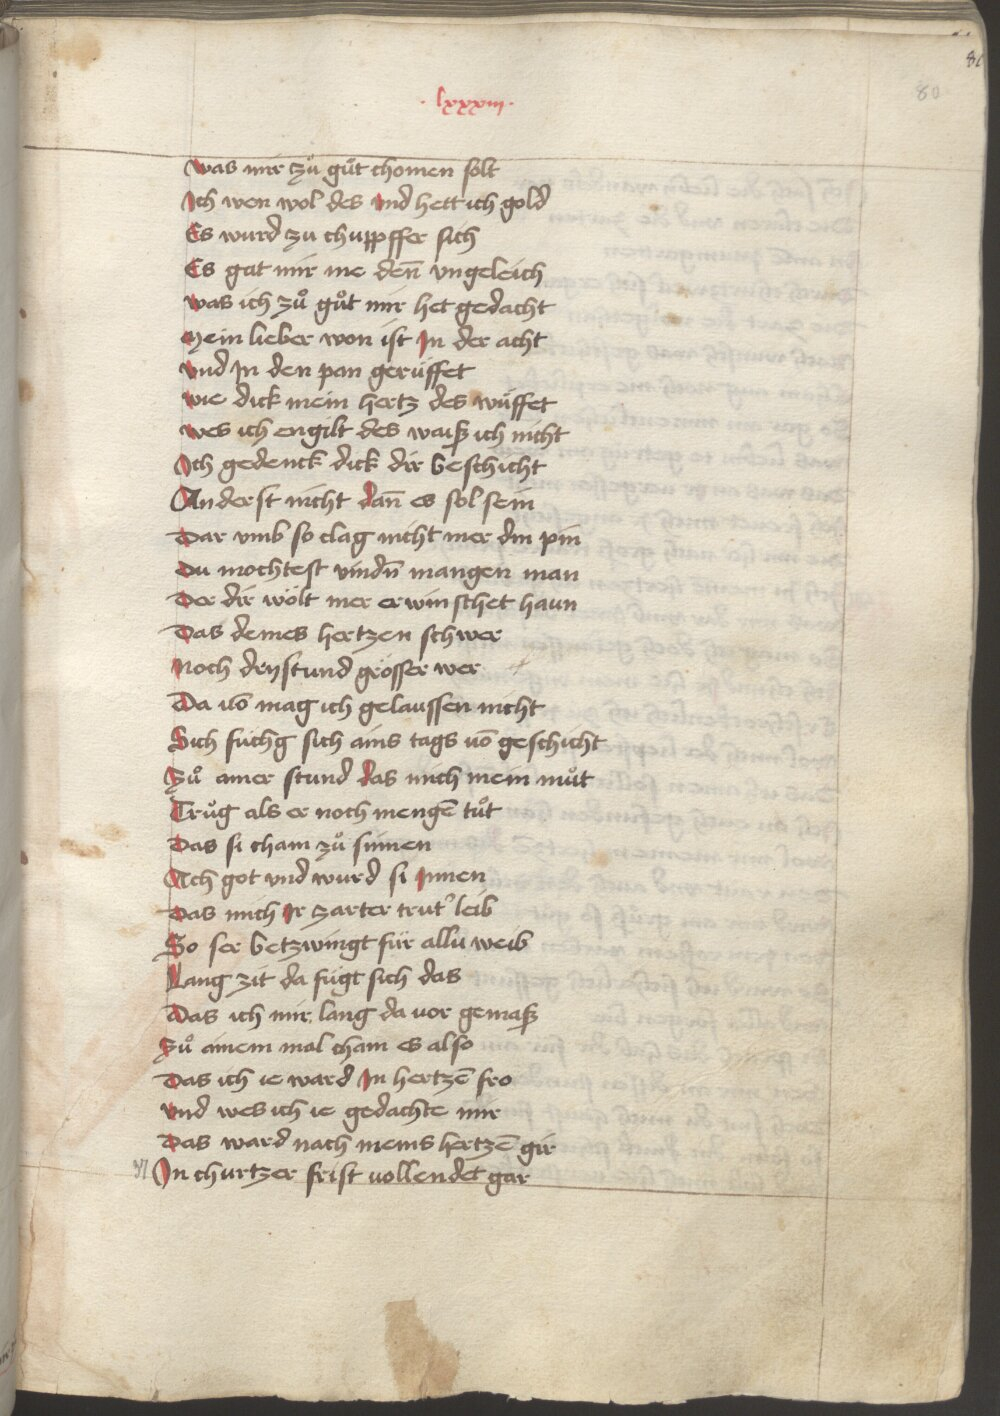 · lxxxiii ·
80
Was mir zů gůt chomen solt
Ich wen wol des Vnd hett ich gold
Es wurd zu chuppffer sich
Es gat mir nie den̄ vngeleich
Was ich zů gůt mir het gedacht
Mein lieber won ist In der acht
Vnd In den pan gerüffet
Wie dick mein hertz des wüffet
Wes ich engilt des waisz ich nicht
Ich gedenck dick dir beschicht
Anderst nicht dan̄ es sol sein
Dar vmb so clag nicht mer din pin
Du mochtest vindn̄ mangen man
Der dir wölt mer erwinschet haun
Das deines hertzen schwer
Noch drystund grösser wer
Da vō mag ich gelaussen nicht
Sich füchg sich ains tags vō geschicht
Zů ainer stund das mich mein můt
Trůg als er noch mengē tůt
Das si cham zů sinnen
Ach got vnd wurd si Innen
Das mich Ir zarter trut leib
So ser betzwingt für allu weib
Lang zit da fügt sich das
Das ich mir lang da vor gemasz
Zů ainem mal cham es also
Das ich ie ward In hertzē fro
Vnd wes ich ie gedachte mir
Das ward nach meins hertzē gir
In churtzer frist vollendet gar